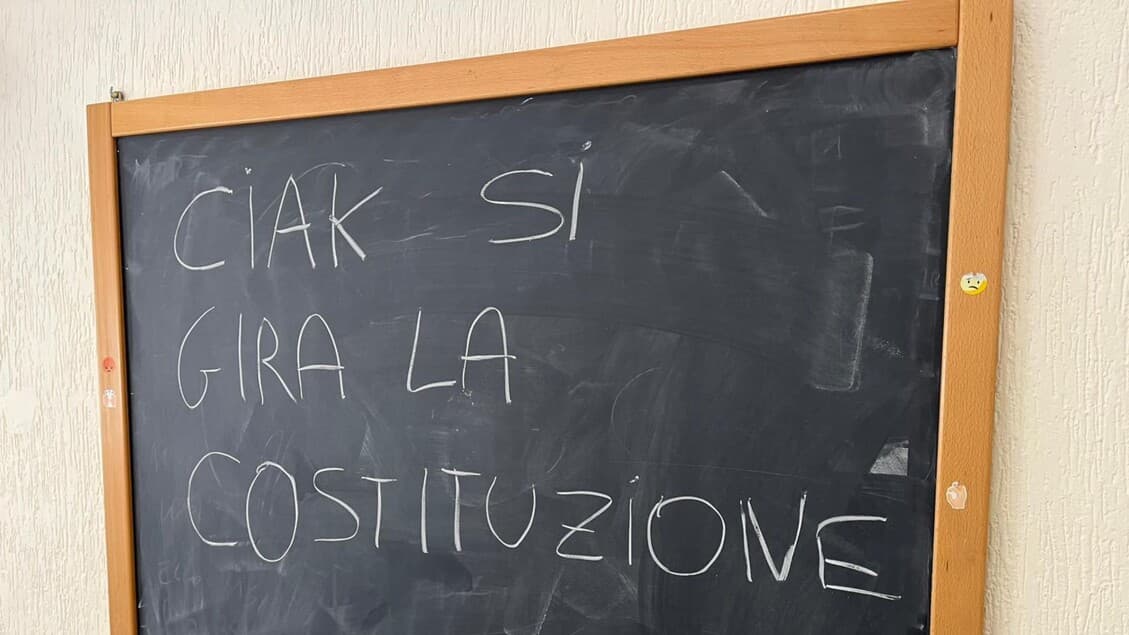 CIAK SI
GIRA LA
COSTITUZIONE